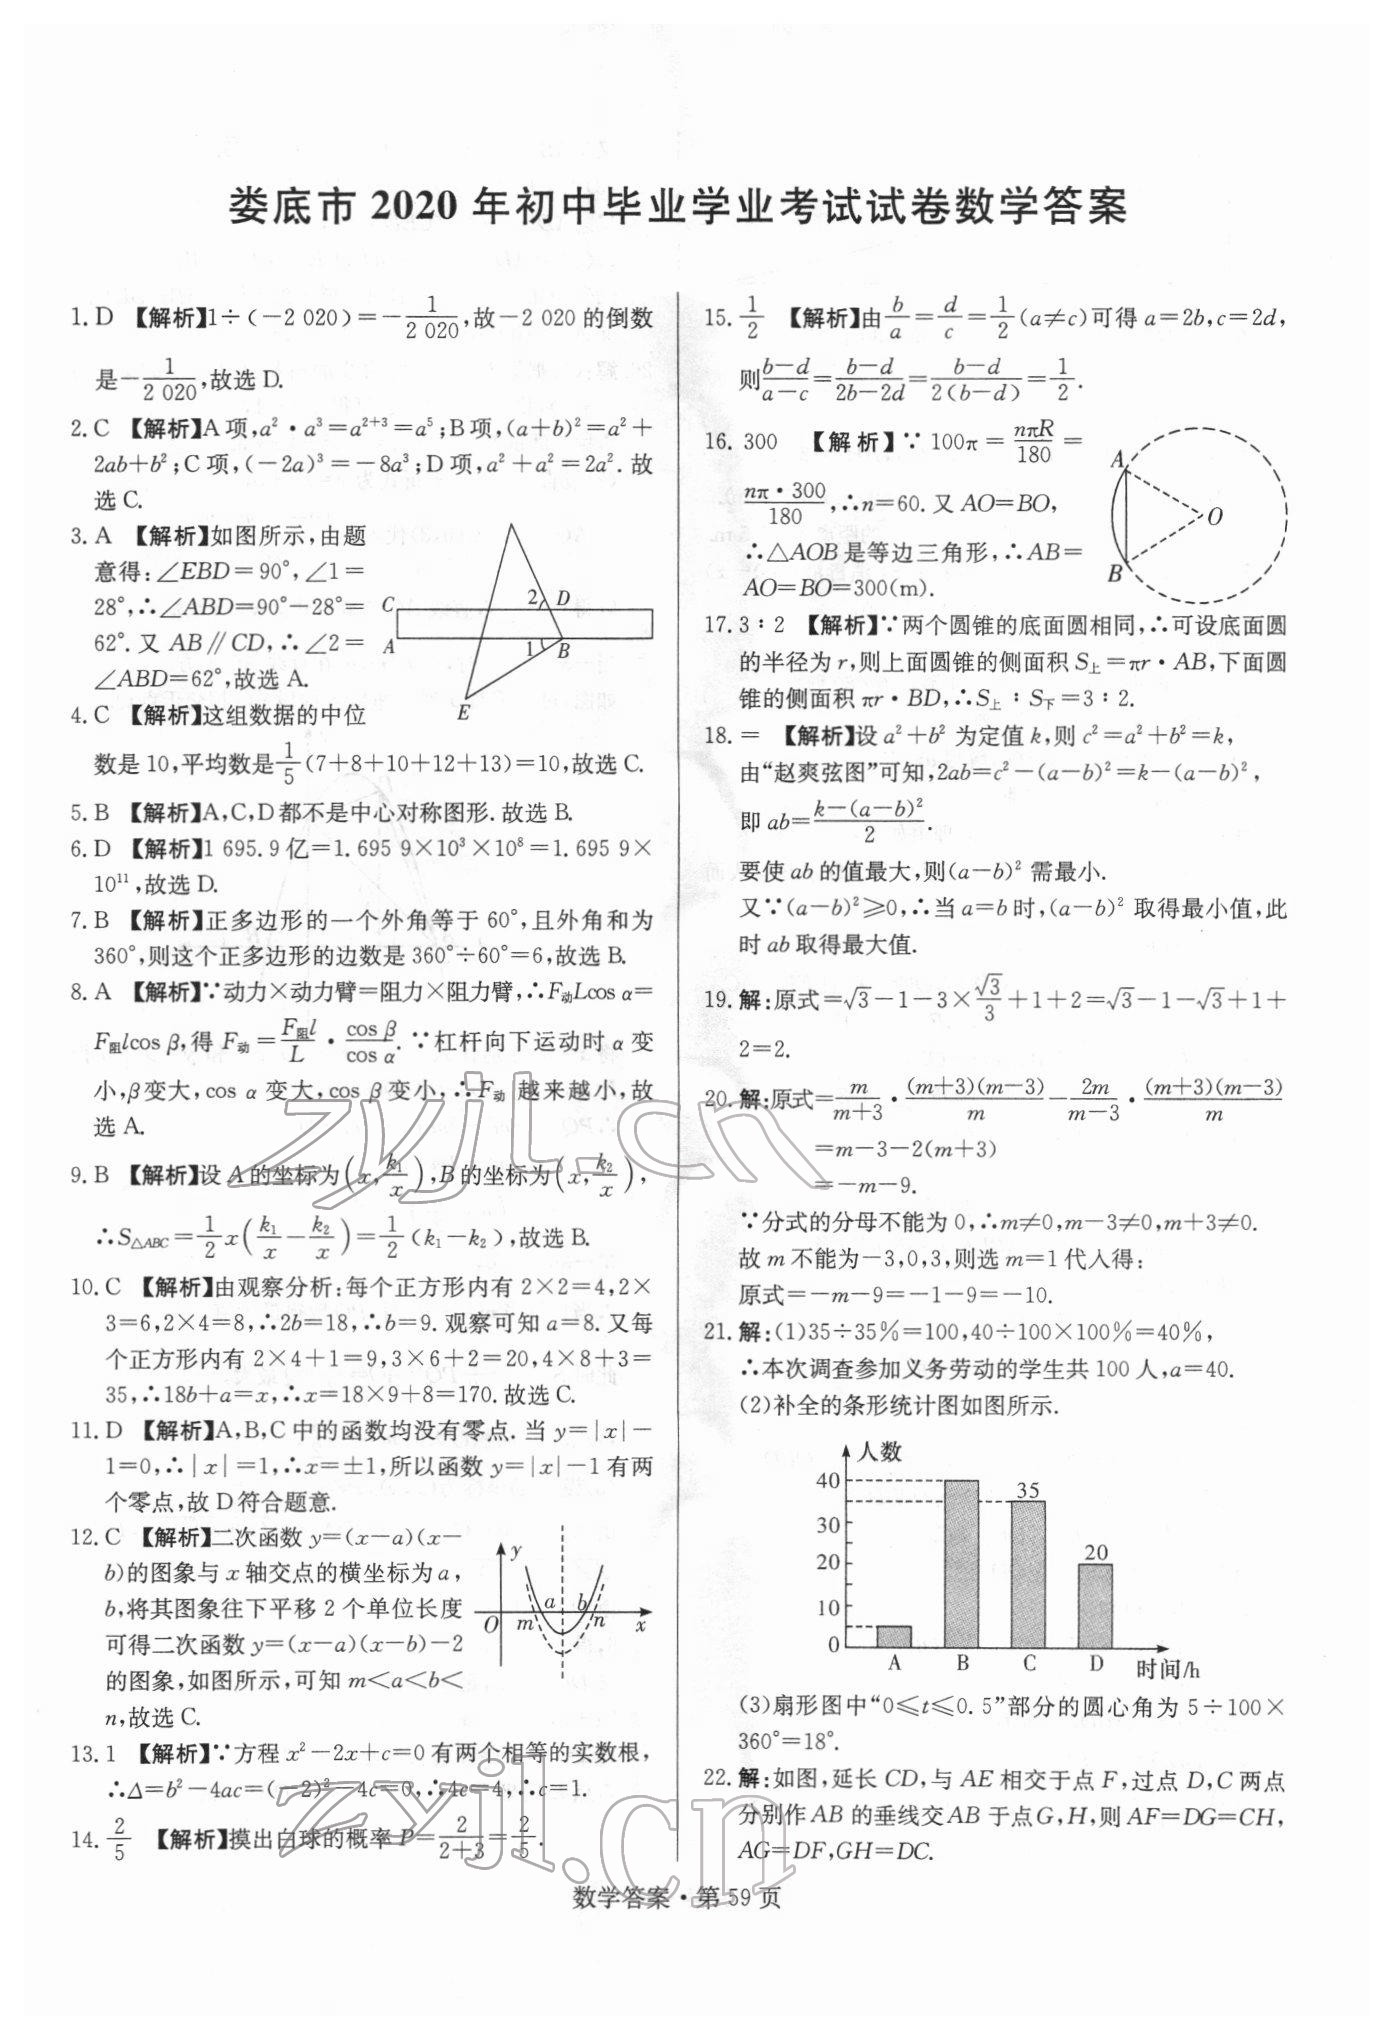 娄底市 2020 年初中毕业学业考试试卷数学答案
1. D 【解析】1÷(-2 020)=-1/2 020,故-2 020 的倒数
是-1/2 020,故选 D.
2. C 【解析】A 项,a²·a³=a²⁺³=a⁵;B 项,(a+b)²=a²+
2ab+b²;C 项,(-2a)³=-8a³;D 项,a²+a²=2a². 故
选 C.
3. A 【解析】如图所示,由题
意得:∠EBD=90°,∠1=
28°,∴∠ABD=90°-28°=
62°. 又 AB∥CD,∴∠2=
∠ABD=62°,故选 A.
C 2 D
A 1 B
E
4. C 【解析】这组数据的中位
数是 10,平均数是1/5(7+8+10+12+13)=10,故选 C.
5. B 【解析】A,C,D 都不是中心对称图形. 故选 B.
6. D 【解析】1 695.9 亿=1.695 9×10³×10⁸=1.695 9×
10¹¹,故选 D.
7. B 【解析】正多边形的一个外角等于 60°,且外角和为
360°,则这个正多边形的边数是 360°÷60°=6,故选 B.
8. A 【解析】∵动力×动力臂=阻力×阻力臂,∴F动Lcos α=
F阻lcos β,得 F动=F阻l/L·cos β/cos α. ∵杠杆向下运动时 α 变
小,β变大,cos α 变大,cos β 变小,∴F动 越来越小,故
选 A.
9. B 【解析】设 A 的坐标为(x,k₁/x),B 的坐标为(x,k₂/x),
∴S△ABC=1/2x(k₁/x-k₂/x)=1/2(k₁-k₂),故选 B.
10. C 【解析】由观察分析:每个正方形内有 2×2=4,2×
3=6,2×4=8,∴2b=18,∴b=9. 观察可知 a=8. 又每
个正方形内有 2×4+1=9,3×6+2=20,4×8+3=
35,∴18b+a=x,∴x=18×9+8=170. 故选 C.
11. D 【解析】A,B,C 中的函数均没有零点. 当 y=|x|-
1=0,∴|x|=1,∴x=±1,所以函数 y=|x|-1 有两
个零点,故 D 符合题意.
12. C 【解析】二次函数 y=(x-a)(x-
b)的图象与 x 轴交点的横坐标为 a,
b,将其图象往下平移 2 个单位长度
可得二次函数 y=(x-a)(x-b)-2
的图象,如图所示,可知 m<a<b<
n,故选 C.
y
a b
O m n x
13. 1 【解析】∵方程 x²-2x+c=0 有两个相等的实数根,
∴Δ=b²-4ac=(-2)²-4c=0,∴4c=4,∴c=1.
14. 2/5 【解析】摸出白球的概率 P=2/2+3=2/5.
15. 1/2 【解析】由b/a=d/c=1/2(a≠c)可得 a=2b,c=2d,
则b-d/a-c=b-d/2b-2d=b-d/2(b-d)=1/2.
16. 300 【解析】∵100π=nπR/180=
nπ·300/180,∴n=60. 又 AO=BO,
∴△AOB 是等边三角形,∴AB=
AO=BO=300(m).
A
O
B
17. 3∶2 【解析】∵两个圆锥的底面圆相同,∴可设底面圆
的半径为 r,则上面圆锥的侧面积 S上=πr·AB,下面圆
锥的侧面积 πr·BD,∴S上∶S下=3∶2.
18. = 【解析】设 a²+b² 为定值 k,则 c²=a²+b²=k,
由“赵爽弦图”可知,2ab=c²-(a-b)²=k-(a-b)²,
即 ab=k-(a-b)²/2.
要使 ab 的值最大,则(a-b)² 需最小.
又∵(a-b)²≥0,∴当 a=b 时,(a-b)² 取得最小值,此
时 ab 取得最大值.
19. 解:原式=√3-1-3×√3/3+1+2=√3-1-√3+1+
2=2.
20. 解:原式=m/m+3·(m+3)(m-3)/m-2m/m-3·(m+3)(m-3)/m
=m-3-2(m+3)
=-m-9.
∵分式的分母不能为 0,∴m≠0,m-3≠0,m+3≠0.
故 m 不能为-3,0,3,则选 m=1 代入得:
原式=-m-9=-1-9=-10.
21. 解:(1)35÷35%=100,40÷100×100%=40%,
∴本次调查参加义务劳动的学生共 100 人,a=40.
(2)补全的条形统计图如图所示.
人数
40
35
30
20
20
10
0
A B C D 时间/h
(3)扇形图中“0≤t≤0.5”部分的圆心角为 5÷100×
360°=18°.
22. 解:如图,延长 CD,与 AE 相交于点 F,过点 D,C 两点
分别作 AB 的垂线交 AB 于点G,H,则 AF=DG=CH,
AG=DF,GH=DC.
数学答案·第 59 页
zyjl.cn
zyjl.cn